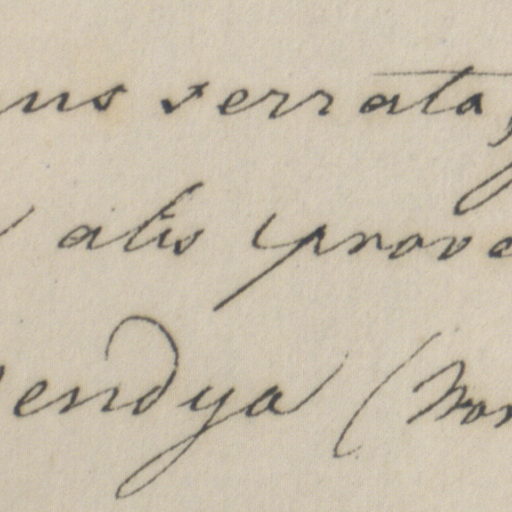 ns serrata,
alis prove
endya (Mon